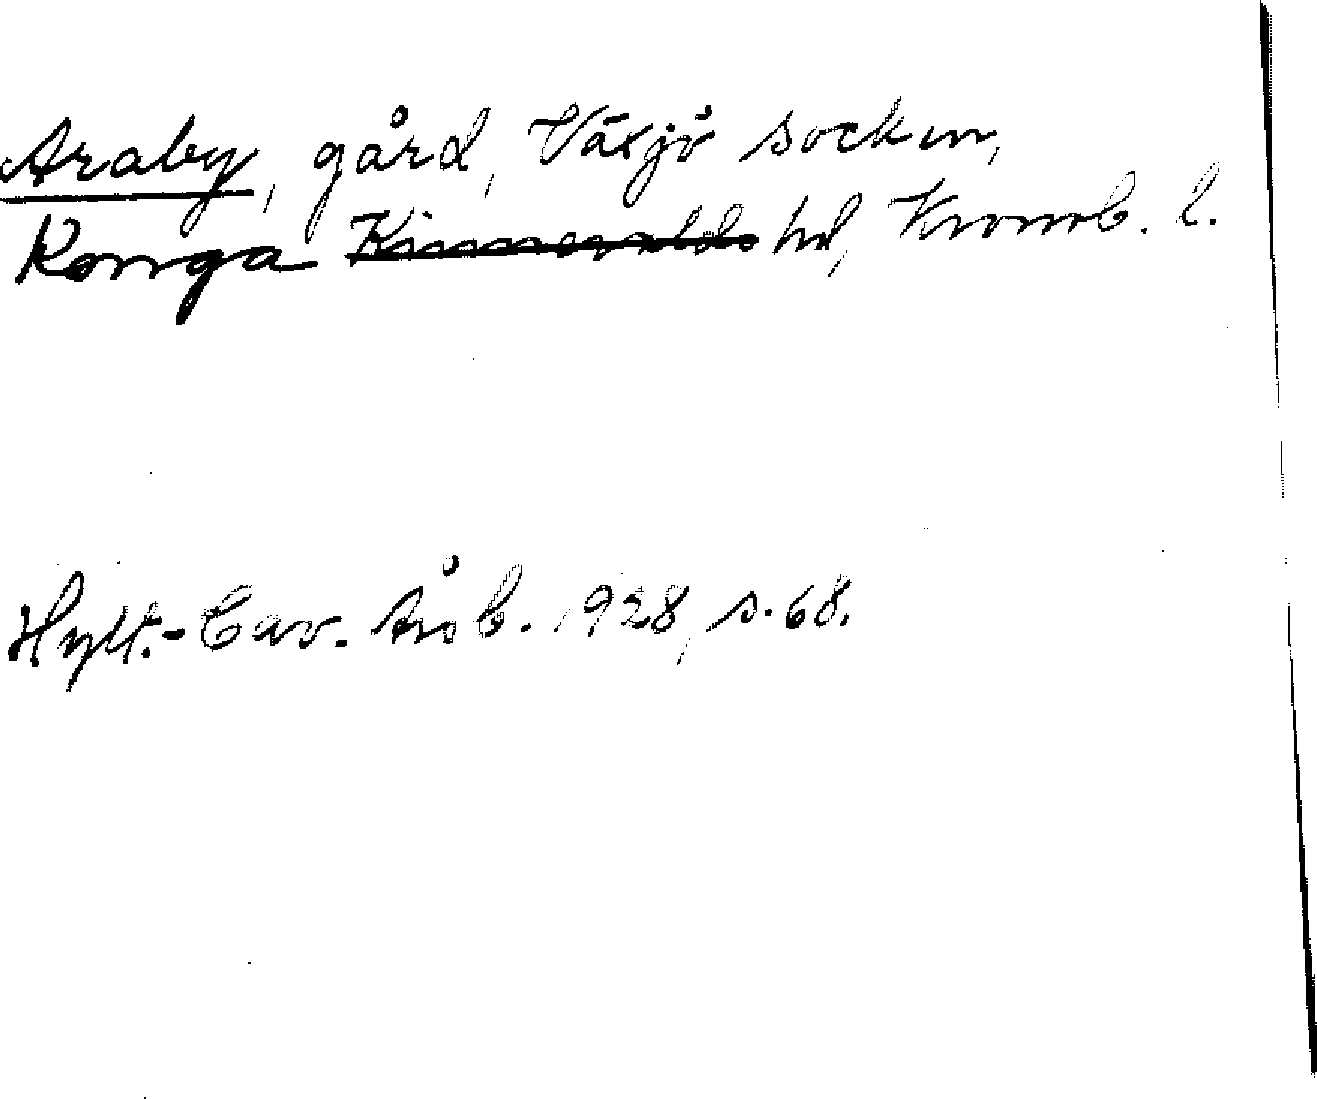 Araby, gård, Växjö socken,
Konga Kinnevalds hd, Kronob. l.
Hylt.-Cav. Årsb. 1928, s. 68.